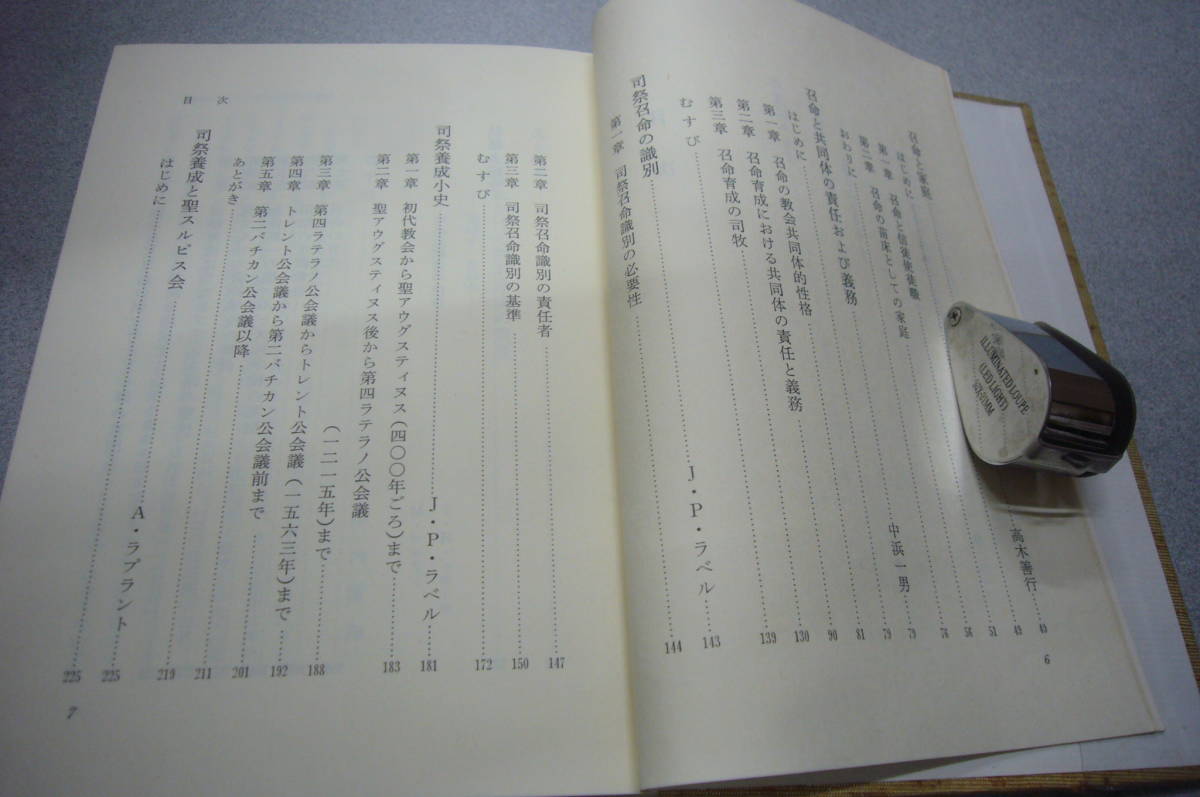 召命と家庭 高木善行 49
はじめに 49
第一章 召命と信徒使徒職 51
第二章 召命の苗床としての家庭 56
おわりに 76
召命と共同体の責任および義務 中浜一男 79
はじめに 79
第一章 召命の教会共同体的性格 81
第二章 召命育成における共同体の責任と義務 90
第三章 召命育成の司牧 130
むすび 139
司祭召命の識別 J・P・ラベル 143
第一章 司祭召命識別の必要性 144
6
第二章 司祭召命識別の責任者 147
第三章 司祭召命識別の基準 150
むすび 172
司祭養成小史 J・P・ラベル 181
第一章 初代教会から聖アウグスティヌス(四〇〇年ごろ)まで 183
第二章 聖アウグスティヌス後から第四ラテラノ公会議
(一二一五年)まで 188
第三章 第四ラテラノ公会議からトレント公会議(一五六三年)まで 192
第四章 トレント公会議から第二バチカン公会議前まで 201
第五章 第二バチカン公会議以降 211
あとがき 219
司祭養成と聖スルピス会 A・ラプラント 225
はじめに 225
目次
7
ILLUMINATED LOUPE
(LED LIGHT)